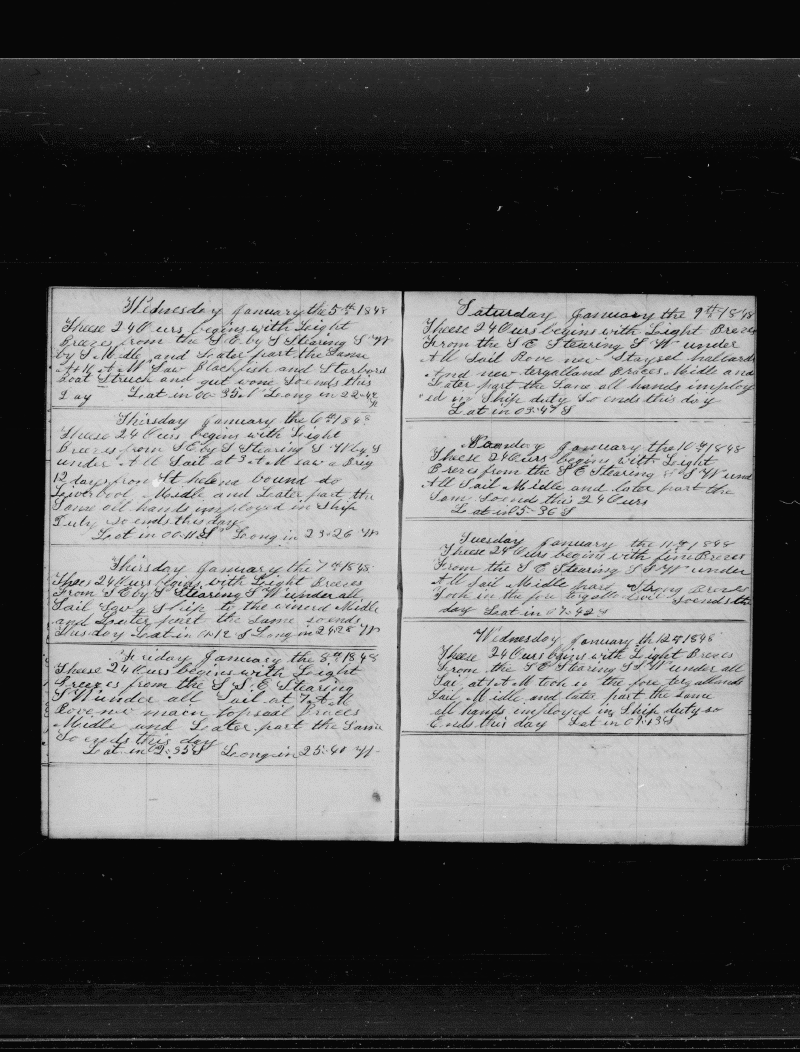 Wednesday January the 5th 1848
Theese 24 Ours begins with Light
Breezes from the S E by S Stearing S W
by S Midle and Later part the Same
At 10 A M Saw Blackfish and Starbord
Boat Struck and gut none So ends this
Day Lat in 00=35 N Long in 22=42 W
Thirsday January the 6th 1848
Theese 24 Ours begins with Light
Brezes from S E by S Stearing S W by S
under All Sail at 3 A M saw a Brig
12 days from St helena bound do
Liverpool Midle and Later part the
Same all hands imployed in Ship
Duty so ends this day
Lat in 00=11 S Long in 23=26 W
Thirsday January the 7th 1848
Thees 24 Ours begins with Light Brezes
From S E by S Stearing S W under all
Sail Saw a Ship to the winerd Midle
and Later part the Same so ends
this day Lat in 01=12 S Long in 24=28 W
Friday January the 8th 1848
Theese 24 Ours begins with Light
Brezes from the S S E Stearing
S W under all Sail at 7 A M
Rove new main topsail Braces
Midle and Later part the Same
So ends this day
Lat in 02=35 S Long in 25=41 W
Saturday January the 9th 1848
Theese 24 Ours begins with Light Brezes
From the S E Stearing S W under
All Sail Rove new Staysel halcards
And new tergalland Braces Midle and
Later part the Same all hands imploy
ed in Ship duty So ends this day
Lat in 03=47 S
January the 10th 1848
Theese 24 Ours begins with Light
Brezes from the S E Stearing S W und
All Sail Midle and later part the
Same So ends this 24 Ours
Lat in 05=36 S
Tuesday January the 11th 1848
Theese 24 Ours begins with fine Brezes
From the S E Stearing S S W under
All Sail Midle part Strong Brezes
Took in the fore So ends this
day Lat in 07=42 S
Wednesday January th 12th 1848
Theese 24 Ours begins with Light Brezes
From the S E Stearing S S W under all
Sai at A M took in the fore ter gallands
Sail Midle and late part the Same
all hands employed in Ship duty so
Ends this day Lat in